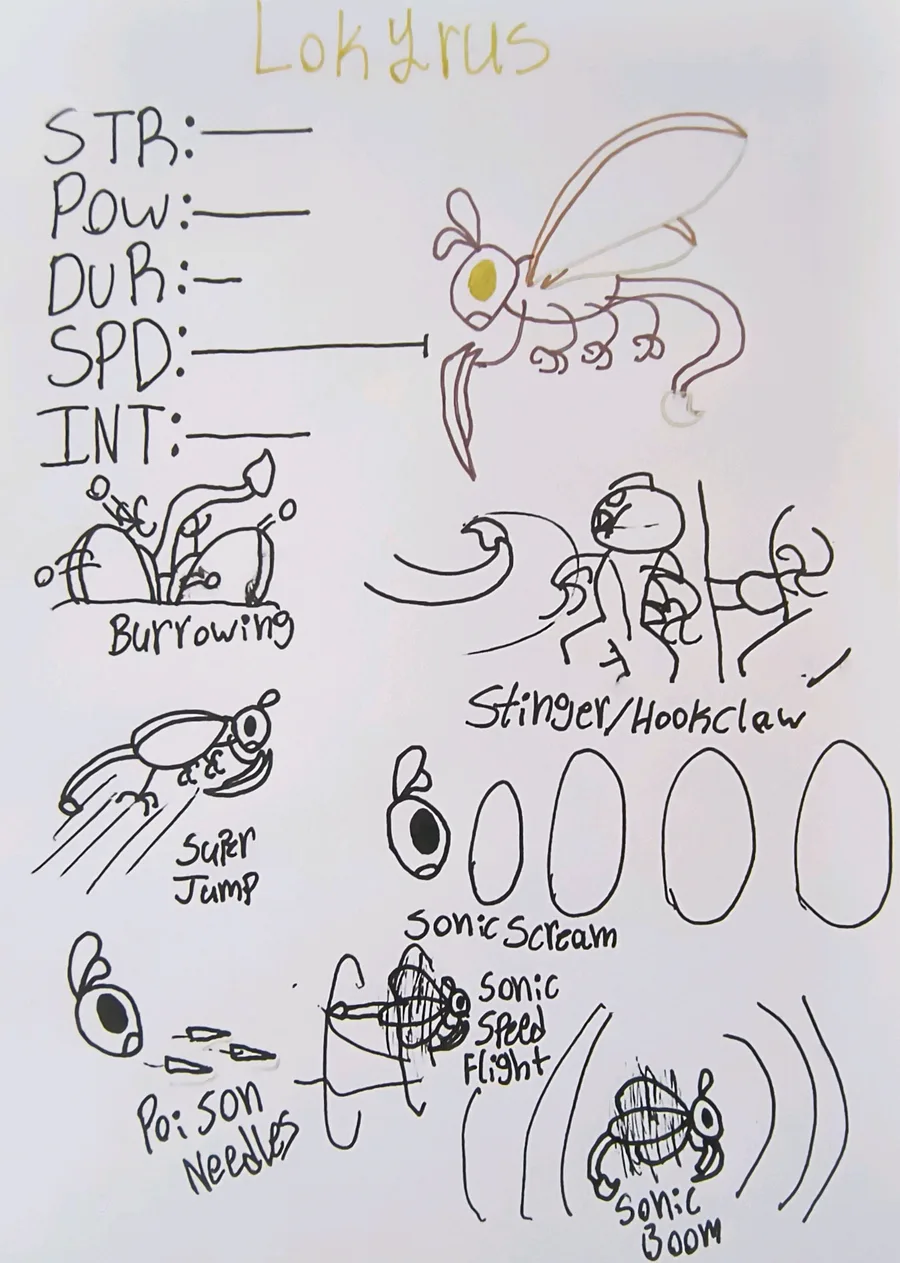 Lokyrus
STR:
POW:
DUR:
SPD:
INT:
Burrowing
Stinger/Hookclaw
Super
Jump
Sonic Scream
Sonic
Speed
Flight
Poison
Needles
Sonic
Boom